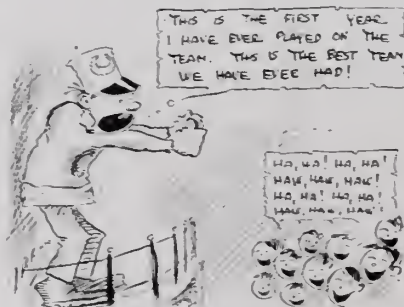 THIS IS THE FIRST YEAR
I HAVE EVER PLAYED ON THE
TEAM. THIS IS THE BEST TEAM
WE HAVE EVER HAD!
HA, HA! HA, HA!
HAW, HAW, HAW!
HA, HA! HA, HA!
HAW, HAW, HAW!